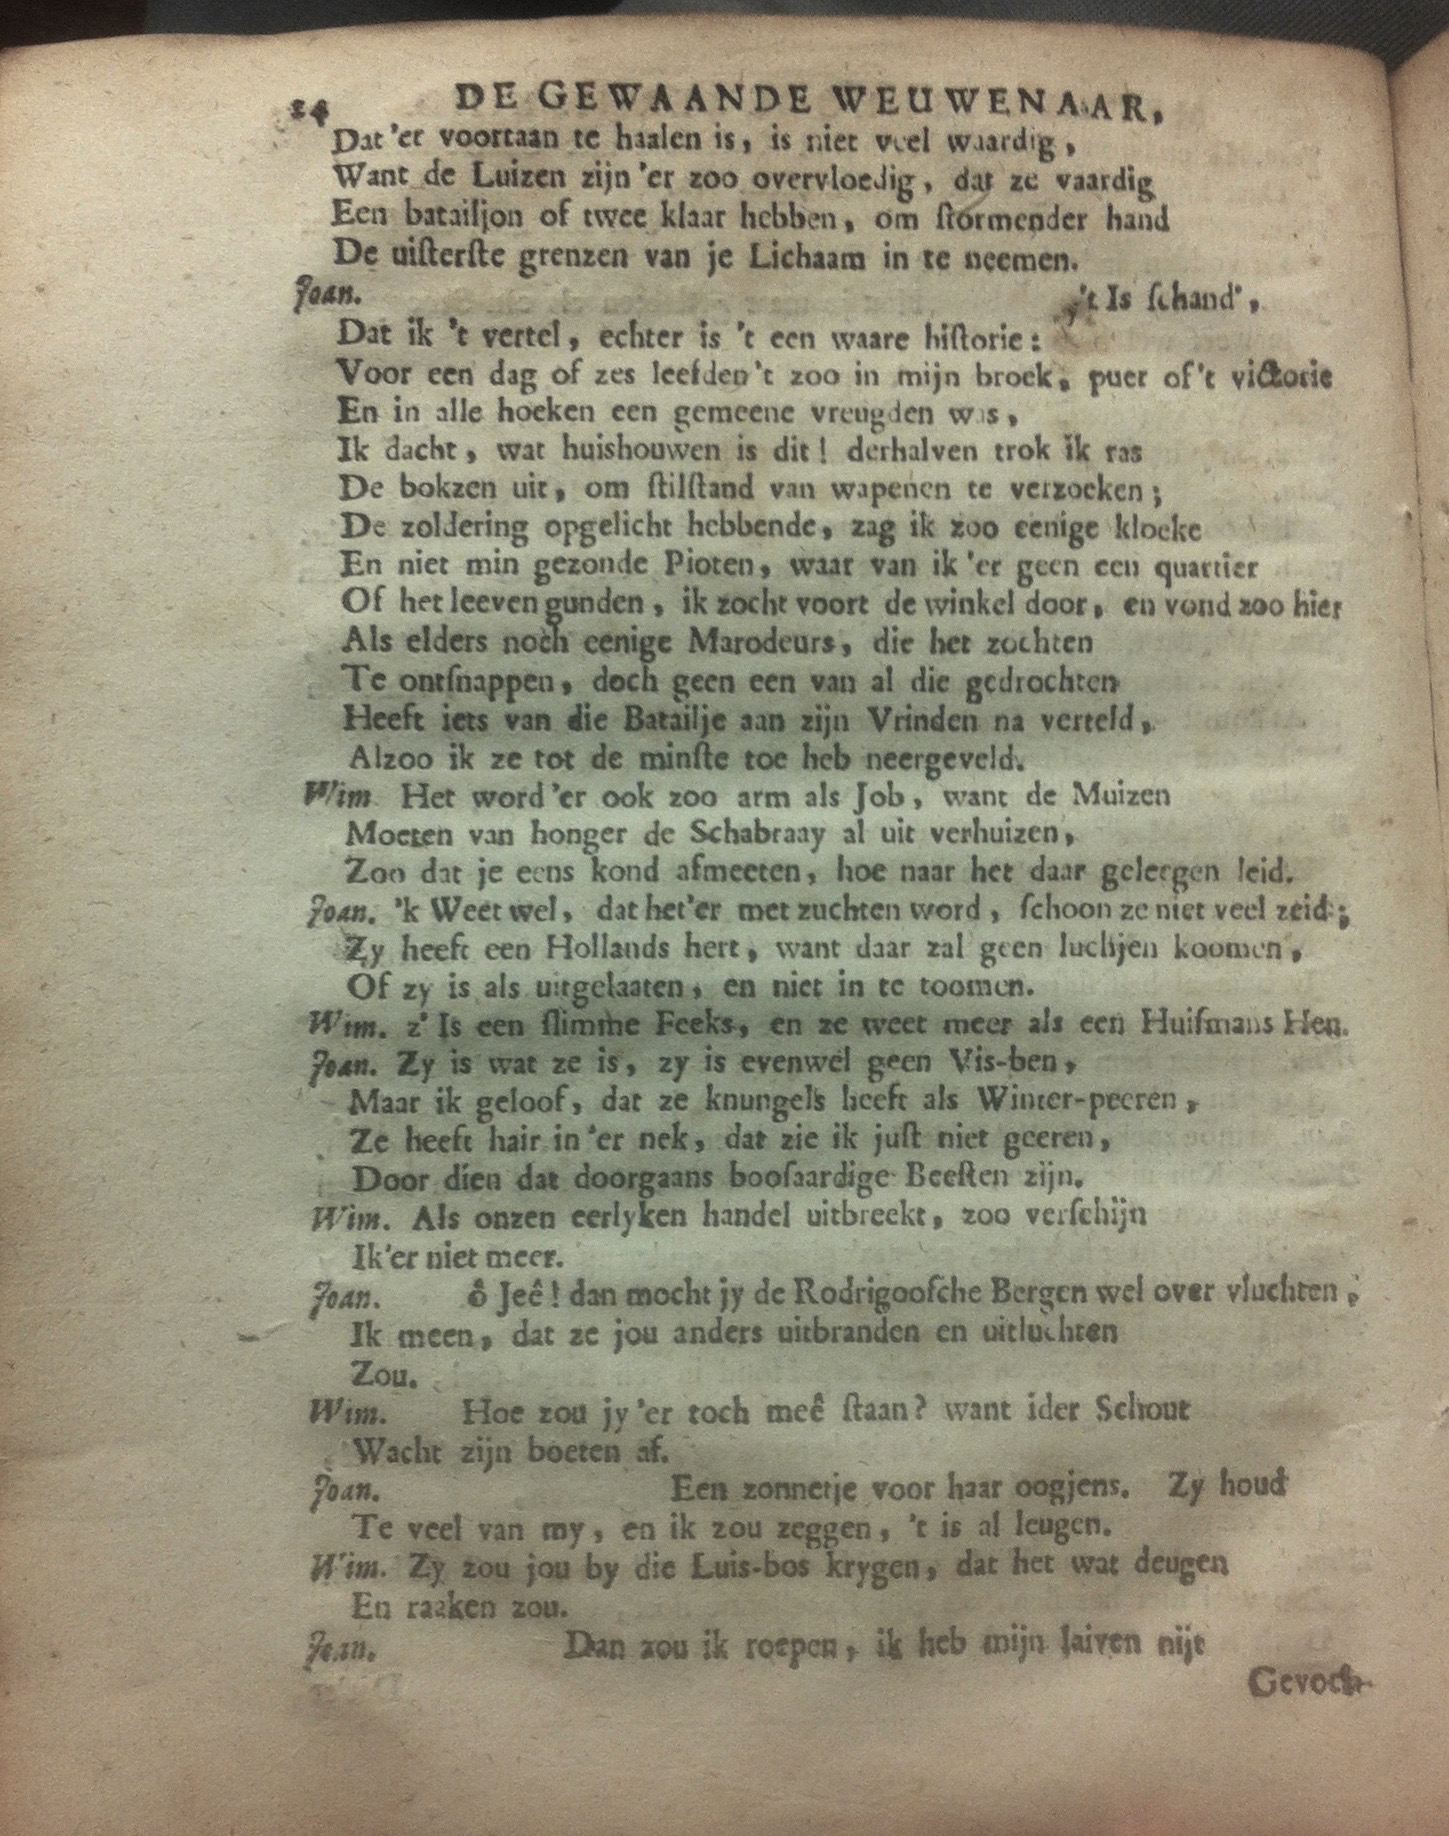 24 DE GEWAANDE WEUWENAAR,
Dat 'er voortaan te haalen is, is niet veel waardig,
Want de Luizen zijn 'er zoo overvloedig, dat ze vaardig
Een batailjon of twee klaar hebben, om ſtormender hand
De uiſterſte grenzen van je Lichaam in te neemen.
Joan. 't Is ſchand',
Dat ik 't vertel, echter is 't een waare hiſtorie:
Voor een dag of zes leefden 't zoo in mijn broek, puer of 't victorie
En in alle hoeken een gemeene vreugden was,
Ik dacht, wat huishouwen is dit! derhalven trok ik ras
De bokzen uit, om ſtilſtand van wapenen te verzoeken;
De zoldering opgelicht hebbende, zag ik zoo eenige kloeke
En niet min gezonde Pioten, waar van ik 'er geen een quartier
Of het leeven gunden, ik zocht voort de winkel door, en vond zoo hier
Als elders noch eenige Marodeurs, die het zochten
Te ontſnappen, doch geen een van al die gedrochten
Heeft iets van die Batailje aan zijn Vrinden na verteld,
Alzoo ik ze tot de minſte toe heb neergeveld.
Wim. Het word 'er ook zoo arm als Job, want de Muizen
Moeten van honger de Schabraay al uit verhuizen,
Zoo dat je eens kond afmeeten, hoe naar het daar geleegen leid.
Joan. 'k Weet wel, dat het 'er met zuchten word, ſchoon ze niet veel zeid;
Zy heeft een Hollands hert, want daar zal geen luchjen koomen,
Of zy is als uitgelaaten, en niet in te toomen.
Wim. z' Is een ſlimme Feeks, en ze weet meer als een Huiſmans Hen.
Joan. Zy is wat ze is, zy is evenwel geen Vis-ben,
Maar ik geloof, dat ze knungels heeft als Winter-peeren,
Ze heeft hair in 'er nek, dat zie ik juſt niet geeren,
Door dien dat doorgaans booſaardige Beeſten zijn.
Wim. Als onzen eerlyken handel uitbreekt, zoo verſchijn
Ik 'er niet meer.
Joan. ô Jeê! dan mocht jy de Rodrigooſche Bergen wel over vluchten;
Ik meen, dat ze jou anders uitbranden en uitluchten
Zou.
Wim. Hoe zou jy 'er toch meê ſtaan? want ider Schout
Wacht zijn boeten af.
Joan. Een zonnetje voor haar oogjens. Zy houd
Te veel van my, en ik zou zeggen, 't is al leugen.
Wim. Zy zou jou by die Luis-bos krygen, dat het wat deugen
En raaken zou.
Joan. Dan zou ik roepen, ik heb mijn laiven nijt
Gevoch-